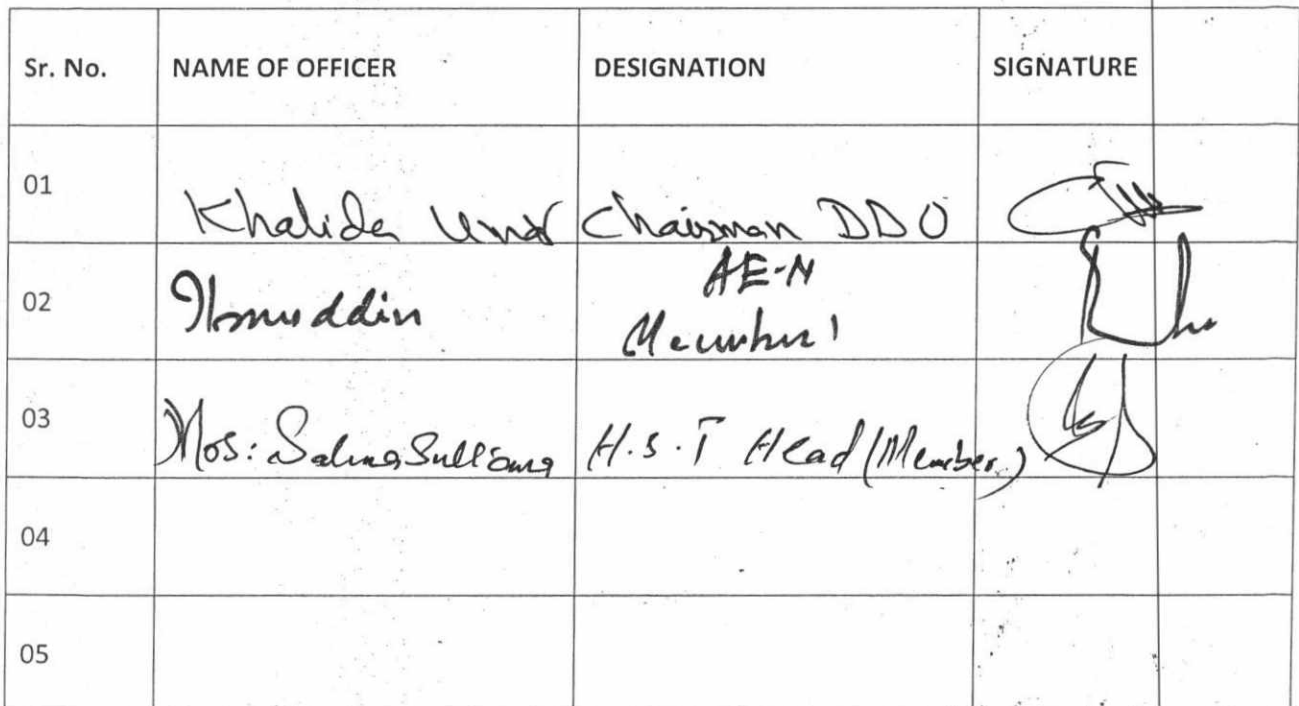 Sr. No. NAME OF OFFICER DESIGNATION SIGNATURE
01 Khalida Chairman DDO
02 AE-N
Member
03 Mos: Salma Sultana H.S.T Head (Member)
04
05